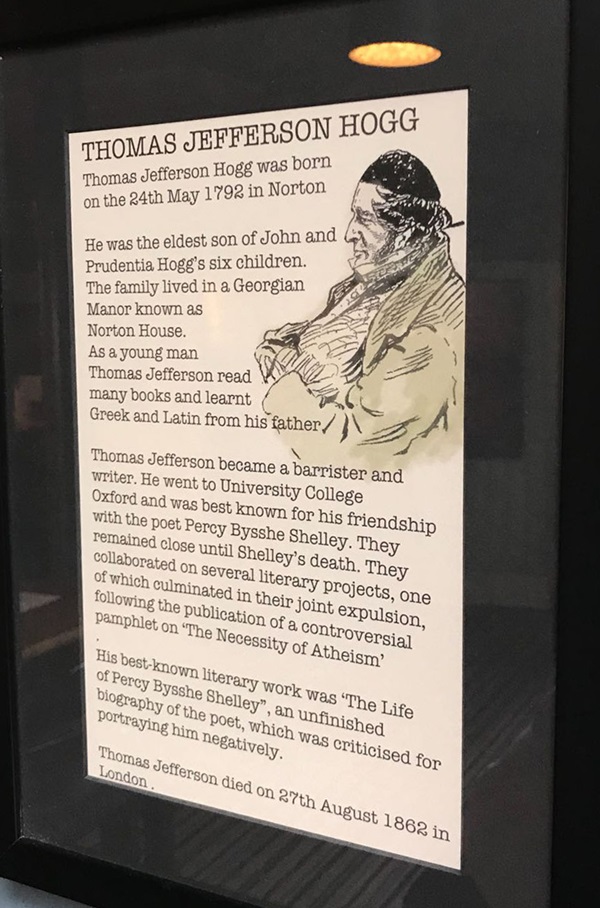 THOMAS JEFFERSON HOGG
Thomas Jefferson Hogg was born
on the 24th May 1792 in Norton
He was the eldest son of John and
Prudentia Hogg's six children.
The family lived in a Georgian
Manor known as
Norton House.
As a young man
Thomas Jefferson read
many books and learnt
Greek and Latin from his father.
Thomas Jefferson became a barrister and
writer. He went to University College
Oxford and was best known for his friendship
with the poet Percy Bysshe Shelley. They
remained close until Shelley's death. They
collaborated on several literary projects, one
of which culminated in their joint expulsion,
following the publication of a controversial
pamphlet on 'The Necessity of Atheism'
.
His best-known literary work was 'The Life
of Percy Bysshe Shelley", an unfinished
biography of the poet, which was criticised for
portraying him negatively.
Thomas Jefferson died on 27th August 1862 in
London .